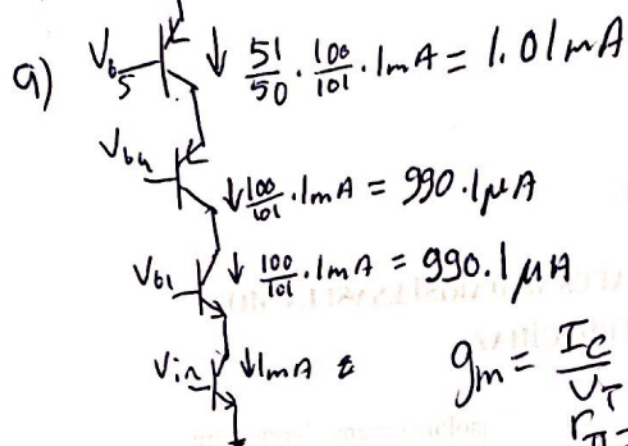 a) V_b5 ↓ 51/50 · 100/101 · 1mA = 1.01mA
V_b4 ↓ 100/101 · 1mA = 990.1μA
V_b1 ↓ 100/101 · 1mA = 990.1μA
V_in ↓ 1mA
g_m = I_C/V_T
r_π =